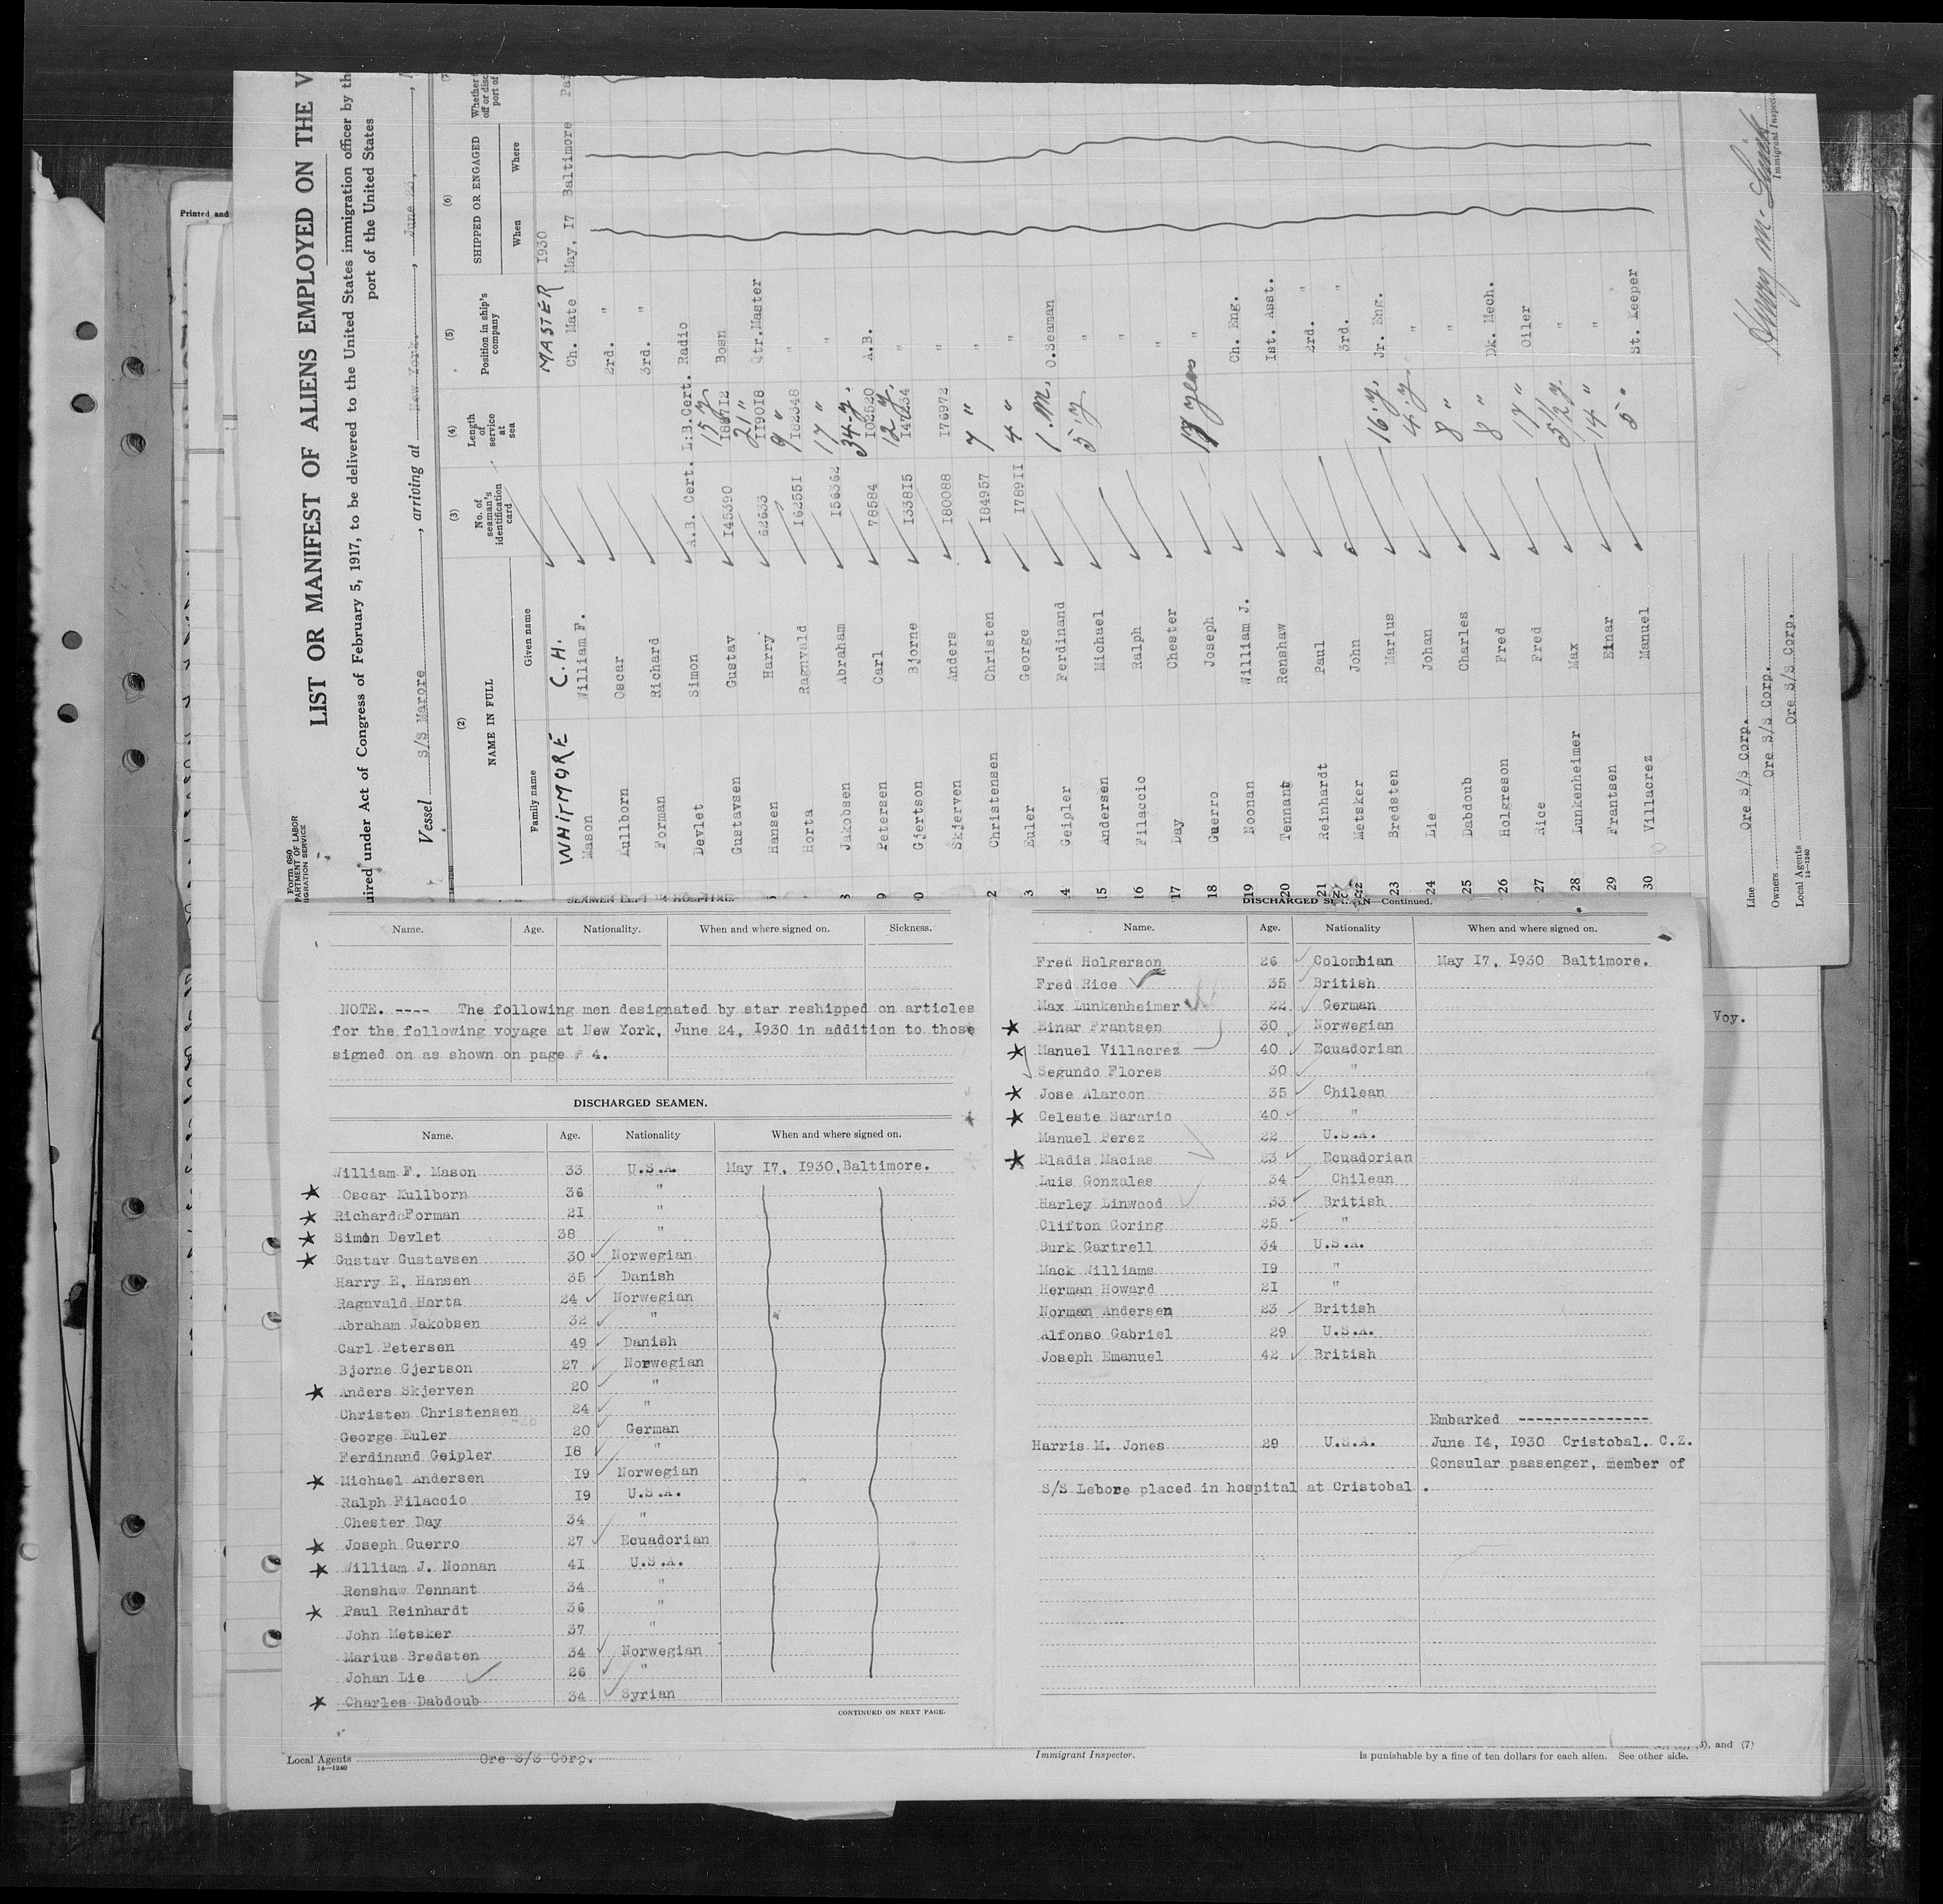 Printed and
Form 680
PARTMENT OF LABOR
IGRATION SERVICE
LIST OR MANIFEST OF ALIENS EMPLOYED ON THE V
uired under Act of Congress of February 5, 1917, to be delivered to the United States immigration officer by th
port of the United States
Vessel S/S Marore, arriving at New York., June 23,
(2) NAME IN FULL
Family name Given name
(3) No. of seaman's identification card
(4) Length of service at sea
(5) Position in ship's company
(6) SHIPPED OR ENGAGED
When Where
Whether
off or disc
port of
WHITMORE C.H. MASTER 1930
Mason William F. Ch. Mate May, I7 Baltimore Pai
Kullborn Oscar 2rd. "
Forman Richard 3rd. "
Devlet Simon A.B. Cert. L:B.Cert. Radio
Gustavsen Gustav 145390 15 y Bosn
Hansen Harry 62633 21 " 119018 Qtr.Master
Horta Ragnvald 162551 9 " 182348 "
8 Jakobsen Abraham 156362 17 " "
9 Petersen Carl 78584 34 y. 102520 A.B.
0 Gjertson Bjorne 133815 12 y. "
Skjerven Anders 180088 176972 "
2 Christensen Christen 184957 7 " "
3 Euler George 178911 4 " "
4 Geipler Ferdinand 1. M. O.Seaman
15 Andersen Michael 5 y "
16 Filaccio Ralph "
17 Day Chester "
18 Guerro Joseph 17 years "
19 Noonan William J. Ch. Eng.
20 Tennant Renshaw Ist. Asst.
21 Reinhardt Paul 2rd. "
22 Metsker John 3rd. "
23 Bredsten Marius 16 y. Jr. Eng.
24 Lie Johan 4 y. "
25 Dabdoub Charles 8 " "
26 Holgreson Fred 8 " Dk. Mech.
27 Rice Fred 17 " Oiler
28 Lunkenheimer Max 5 1/2 y. "
29 Frantsen Einar 14 " "
30 Villacrez Manuel 5 " St. Keeper
Line Ore S/S Corp.
Owners Ore S/S Corp.
Local Agents Ore S/S Corp.
14—1240
Immigrant Inspector
Name. Age. Nationality. When and where signed on. Sickness.
NOTE. ---- The following men designated by star reshipped on articles
for the following voyage at New York, June 24, I930 in addition to those
signed on as shown on page # 4.
DISCHARGED SEAMEN.
Name. Age. Nationality When and where signed on.
William F. Mason 33 U.S.A. May I7, I930,Baltimore.
★ Oscar Kullborn 36 "
★ Richard Forman 2I "
★ Simon Devlet 38 "
★ Gustav Gustavsen 30 ✓ Norwegian
Harry E. Hansen 35 ✓ Danish
Ragnvald Horta 24 ✓ Norwegian
Abraham Jakobsen 32 ✓ "
Carl Petersen 49 ✓ Danish
Bjorne Gjertson 27 ✓ Norwegian
★ Anders Skjerven 20 ✓ "
Christen Christensen 24 ✓ "
George Euler 20 ✓ German
Ferdinand Geipler I8 ✓ "
★ Michael Andersen I9 ✓ Norwegian
Ralph Filaccio I9 U.S.A.
Chester Day 34 "
★ Joseph Guerro 27 ✓ Ecuadorian
★ William J. Noonan 4I U.S.A.
Renshaw Tennant 34 "
★ Paul Reinhardt 36 "
John Metsker 37 "
Marius Bredsten 34 ✓ Norwegian
Johan Lie ✓ 26 ✓ "
★ Charles Dabdoub 34 ✓ Syrian
CONTINUED ON NEXT PAGE.
DISCHARGED SEAMEN—Continued.
Name. Age. Nationality When and where signed on.
Fred Holgerson 26 ✓ Colombian May I7, I930 Baltimore.
Fred Rice ✓ 35 ✓ British
Max Lunkenheimer ✓ 22 ✓ German
★ Einar Frantsen 30 ✓ Norwegian
★ Manuel Villacrez 40 ✓ Ecuadorian
Segundo Flores 30 ✓ "
★ Jose Alarcon 35 ✓ Chilean
★ Celeste Sarario 40 ✓ "
Manuel Perez 22 U.S.A.
★ Eladis Macias 23 ✓ Ecuadorian
Luis Gonzales 34 ✓ Chilean
Harley Linwood 33 ✓ British
Clifton Goring 25 ✓ "
Burk Gartrell 34 U.S.A.
Mack Williams I9 "
Herman Howard 2I "
Norman Andersen 23 ✓ British
Alfonso Gabriel 29 U.S.A.
Joseph Emanuel 42 ✓ British
Embarked ---------------
Harris M. Jones 29 U.S.A. June I4, I930 Cristobal. C.Z.
Consular passenger, member of
S/S Lebore placed in hospital at Cristobal .
Voy.
Local Agents Ore S/S Corp.
14—1240
Immigrant Inspector.
and (7)
is punishable by a fine of ten dollars for each alien. See other side.